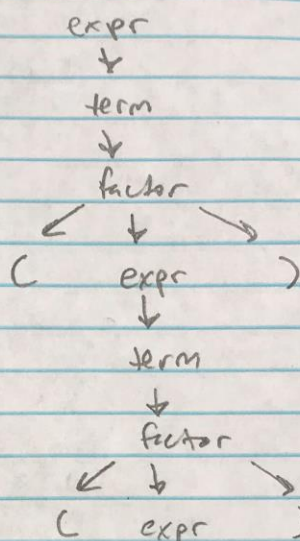 expr
term
factor
( expr )
term
factor
( expr )